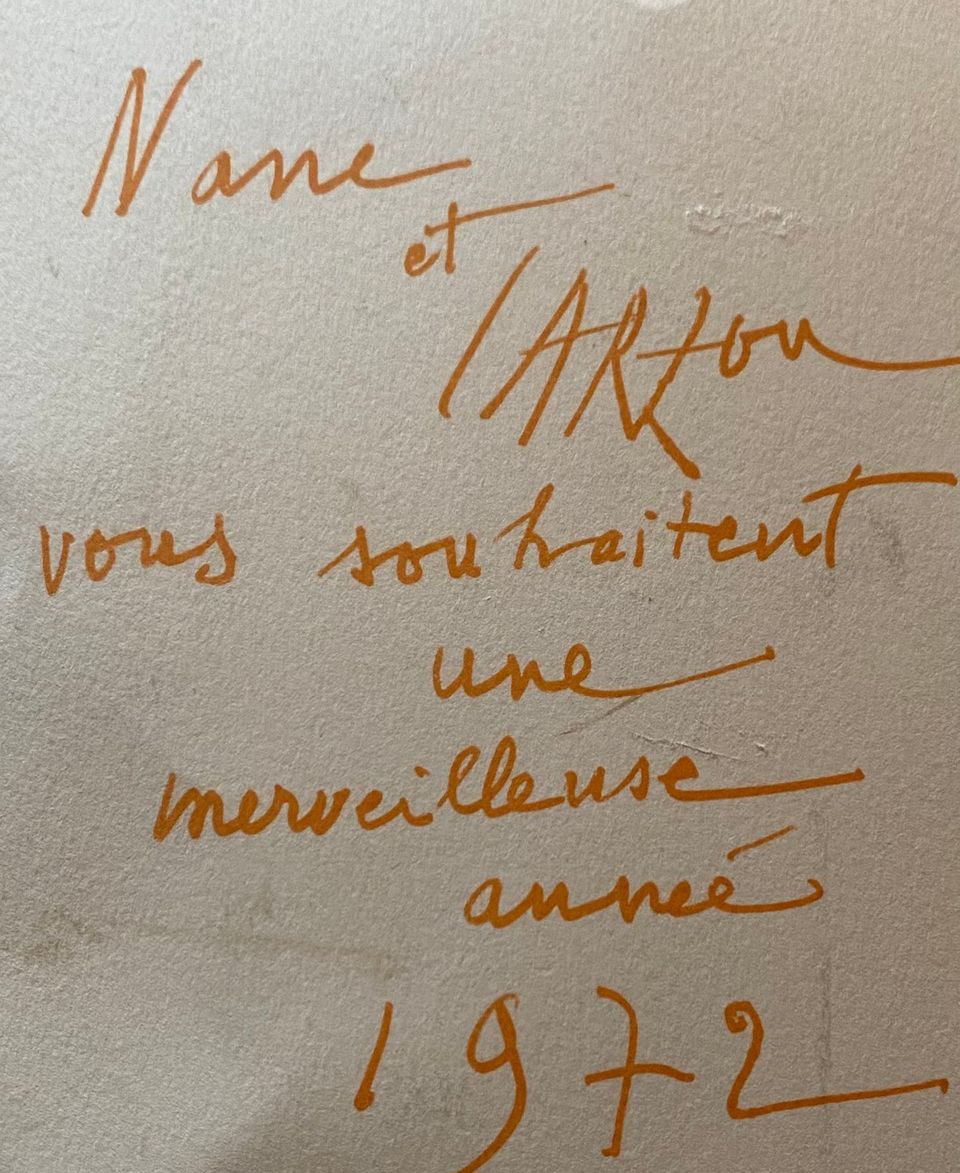 Nane
et
CARZOU
vous souhaitent
une
merveilleuse
année
1972